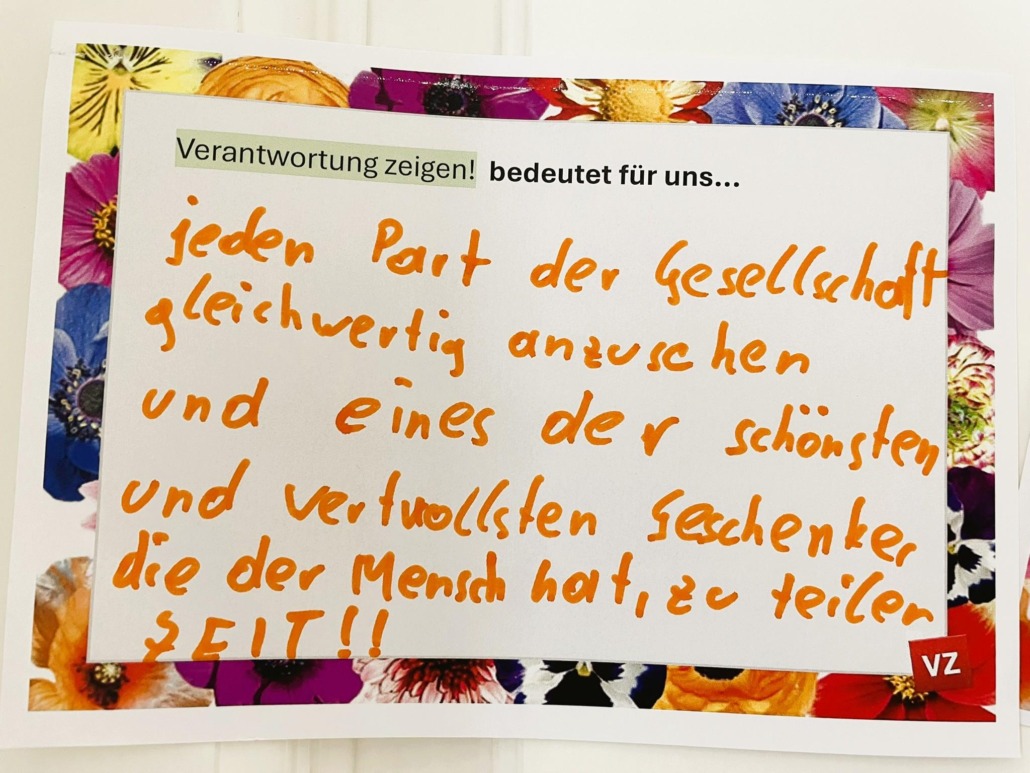 Verantwortung zeigen! bedeutet für uns...
jeden Part der Gesellschaft
gleichwertig anzusehen
und eines der schönsten
und vertvollsten Geschenker
die der Mensch hat, zu teilen
ZEIT!!
VZ